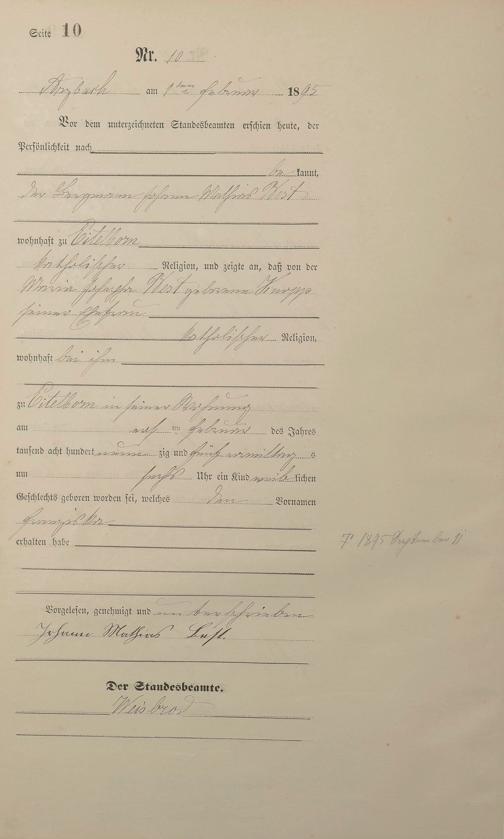 Seite 10
Nr. 10
Arzbach am 1ten Februar 1895
Vor dem unterzeichneten Standesbeamten erschien heute, der
Persönlichkeit nach
be kannt,
der Bergmann Johann Mathias
wohnhaft zu Eitelborn
katholischer Religion, und zeigte an, daß von der
Maria Josepha geborene Knopp
seiner Ehefrau
katholischer Religion,
wohnhaft bei ihm
zu Eitelborn in seiner Wohnung
am ersten Februar des Jahres
tausend acht hundert neun zig und fünf vormittag s
um sechs Uhr ein Kind weib lichen
Geschlechts geboren worden sei, welches den Vornamen
Franziska
erhalten habe
† 1895 September 11
Vorgelesen, genehmigt und unterschrieben
Johann Mathias
Der Standesbeamte.
Weisbrod